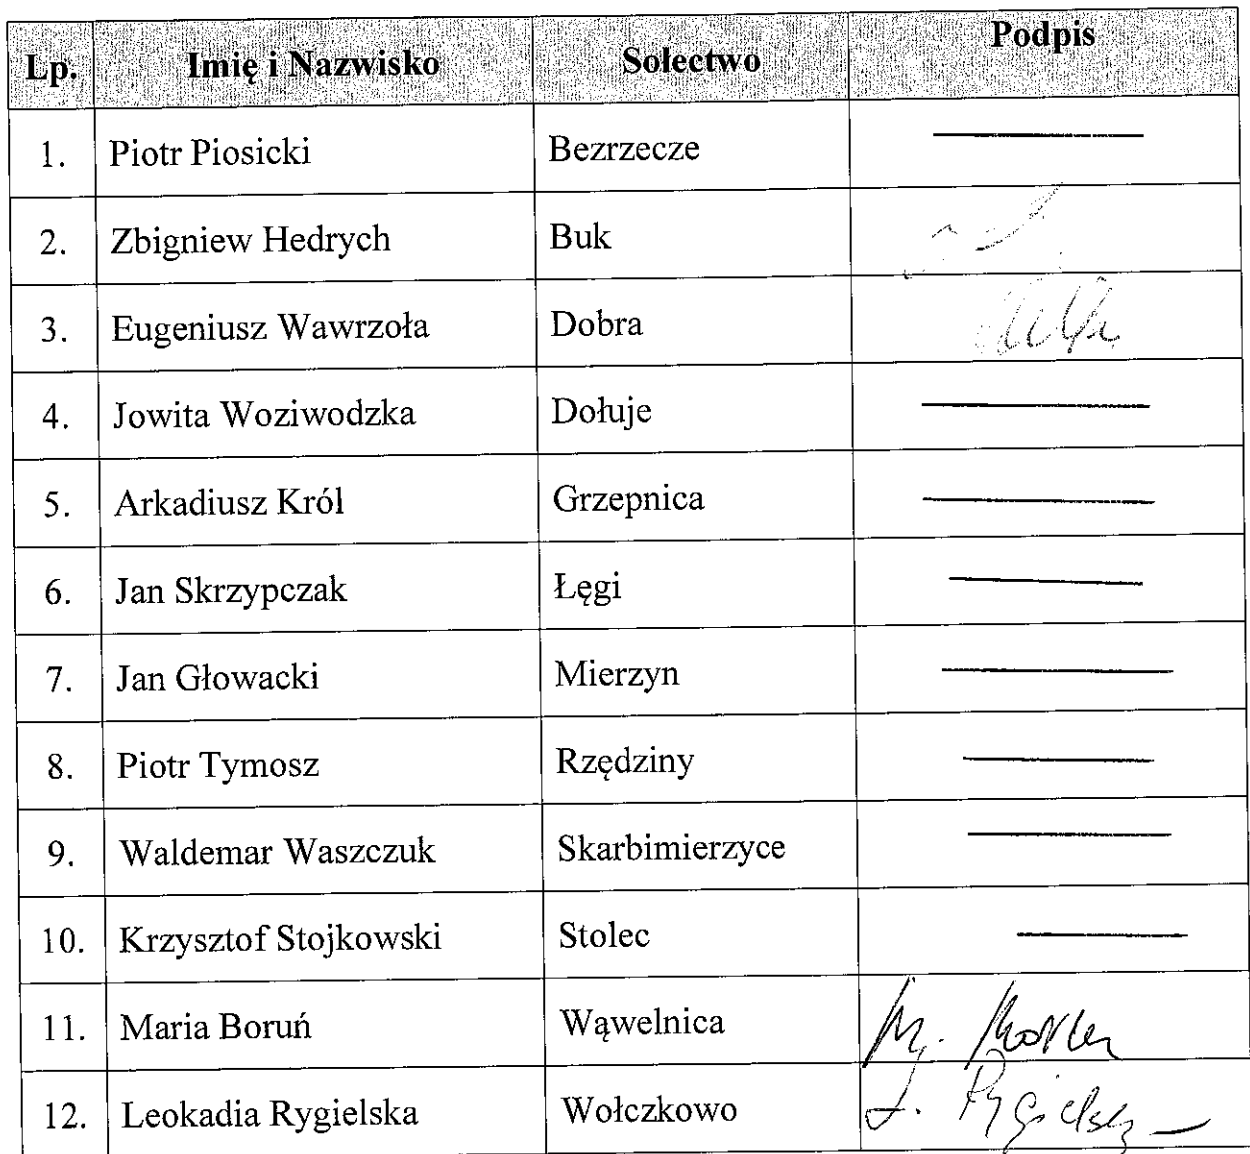 Lp. Imię i Nazwisko Sołectwo Podpis
1. Piotr Piosicki Bezrzecze
2. Zbigniew Hedrych Buk
3. Eugeniusz Wawrzoła Dobra
4. Jowita Woziwodzka Dołuje
5. Arkadiusz Król Grzepnica
6. Jan Skrzypczak Łęgi
7. Jan Głowacki Mierzyn
8. Piotr Tymosz Rzędziny
9. Waldemar Waszczuk Skarbimierzyce
10. Krzysztof Stojkowski Stolec
11. Maria Boruń Wąwelnica M.
12. Leokadia Rygielska Wołczkowo L. Rygielska